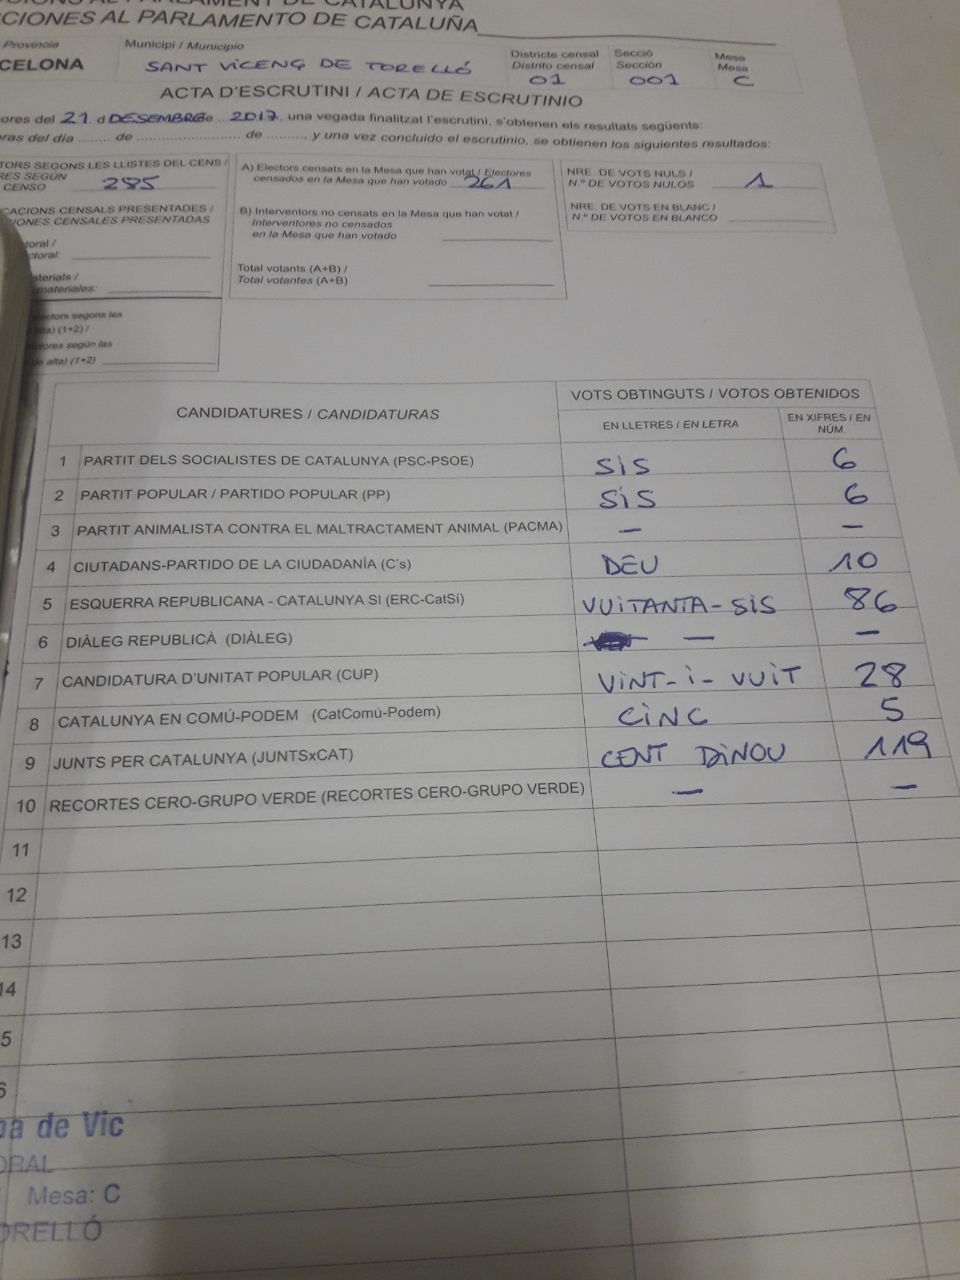 CIONS AL PARLAMENT DE CATALUNYA
CIONES AL PARLAMENTO DE CATALUÑA
Provincia
CELONA
Municipi / Municipio
SANT VICENÇ DE TORELLÓ
Districte censal
Distrito censal
01
Secció
Sección
001
Mesa
Mesa
C
ACTA D'ESCRUTINI / ACTA DE ESCRUTINIO
ores del 21 d DESEMBRE de 2017, una vegada finalitzat l'escrutini, s'obtenen els resultats següents:
oras del día ........ de ........................ de ........., y una vez concluido el escrutinio, se obtienen los siguientes resultados:
TORS SEGONS LES LLISTES DEL CENS /
RES SEGÚN
CENSO 285
CACIONS CENSALS PRESENTADES /
IONES CENSALES PRESENTADAS
toral /
ctoral:
aterials /
materiales:
ectors segons les
alta) (1+2) /
ctores según las
de alta) (1+2)
A) Electors censats en la Mesa que han votat / Electores
censados en la Mesa que han votado 261
B) Interventors no censats en la Mesa que han votat /
Interventores no censados
en la Mesa que han votado
Total votants (A+B) /
Total votantes (A+B)
NRE. DE VOTS NULS /
N.º DE VOTOS NULOS 1
NRE. DE VOTS EN BLANC /
N.º DE VOTOS EN BLANCO
CANDIDATURES / CANDIDATURAS
VOTS OBTINGUTS / VOTOS OBTENIDOS
EN LLETRES / EN LETRA
EN XIFRES / EN
NÚM.
1 PARTIT DELS SOCIALISTES DE CATALUNYA (PSC-PSOE) SIS 6
2 PARTIT POPULAR / PARTIDO POPULAR (PP) SIS 6
3 PARTIT ANIMALISTA CONTRA EL MALTRACTAMENT ANIMAL (PACMA) – –
4 CIUTADANS-PARTIDO DE LA CIUDADANÍA (C's) DEU 10
5 ESQUERRA REPUBLICANA - CATALUNYA SI (ERC-CatSí) VUITANTA-SIS 86
6 DIÀLEG REPUBLICÀ (DIÀLEG) – –
7 CANDIDATURA D'UNITAT POPULAR (CUP) VINT-I-VUIT 28
8 CATALUNYA EN COMÚ-PODEM (CatComú-Podem) CINC 5
9 JUNTS PER CATALUNYA (JUNTSxCAT) CENT DINOU 119
10 RECORTES CERO-GRUPO VERDE (RECORTES CERO-GRUPO VERDE) – –
11
12
13
14
5
6
na de Vic
ORAL
Mesa: C
ORELLÓ